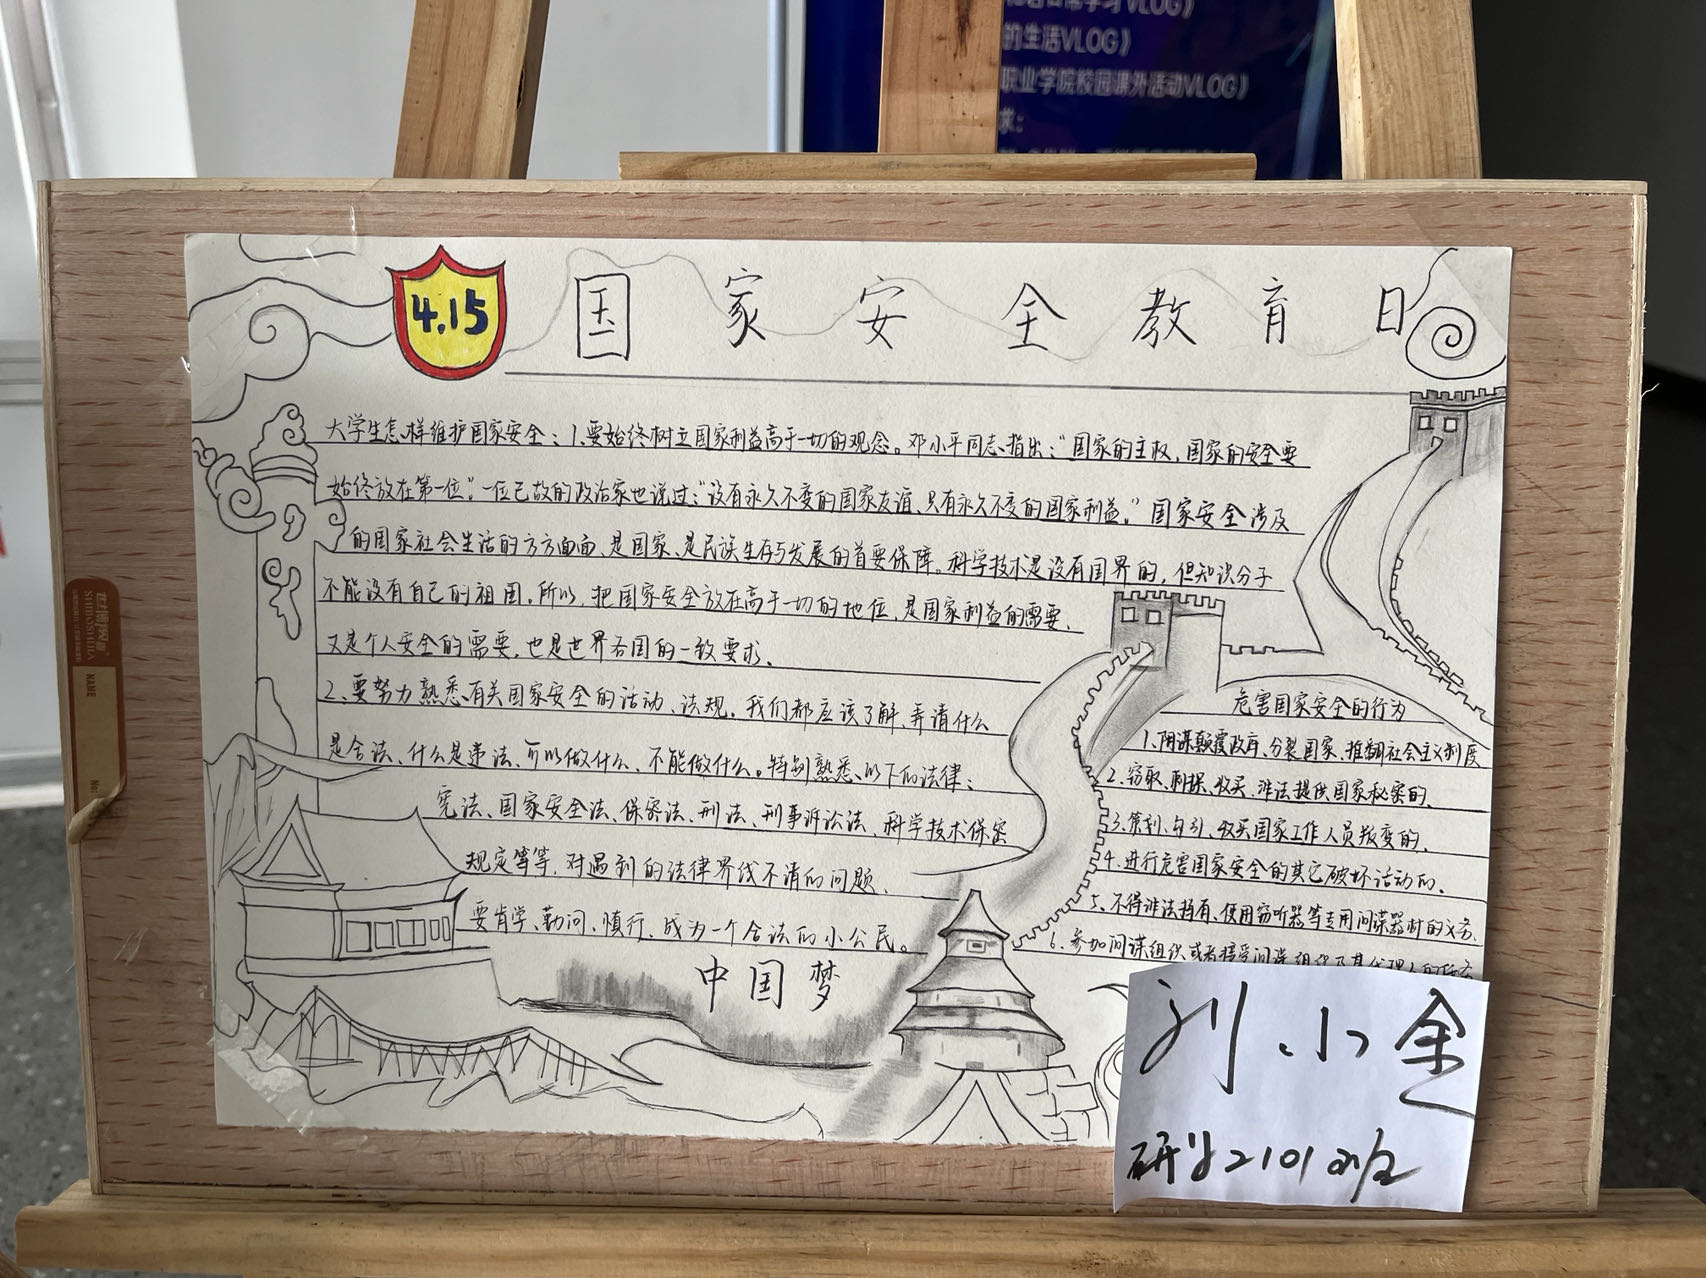 的生活VLOG》
职业学院校园课外活动VLOG》
求：
4.15
国家安全教育日
大学生怎样维护国家安全：1.要始终树立国家利益高于一切的观念。邓小平同志指出："国家的主权，国家的安全要
始终放在第一位"。一位已故的政治家也说过："没有永久不变的国家友谊、只有永久不变的国家利益。"国家安全涉及
的国家社会生活的方方面面、是国家、是民族生存与发展的首要保障。科学技术是没有国界的，但知识分子
不能没有自己的祖国。所以，把国家安全放在高于一切的地位，是国家利益的需要、
又是个人安全的需要，也是世界各国的一致要求、
2、要努力熟悉有关国家安全的活动、法规。我们都应该了解、弄清什么
是合法、什么是违法、可以做什么、不能做什么。特别熟悉以下的法律：
宪法、国家安全法、保密法、刑法、刑事诉讼法、科学技术保密
规定等等，对遇到的法律界线不清的问题、
要肯学、勤问、慎行、成为一个合法的小公民。
中国梦
危害国家安全的行为
1.阴谋颠覆政府、分裂国家、推翻社会主义制度
2.窃取、刺探、收买、非法提供国家秘密的、
3.策划、勾引、收买国家工作人员叛变的、
4.进行危害国家安全的其它破坏活动的、
5、不得非法持有、使用窃听器等专用间谍器材的义务、
6.参加间谍组织或者接受间谍组织及其代理人的任务
刘小金
2101班
SHIBOSHIJIA
NAME
No: